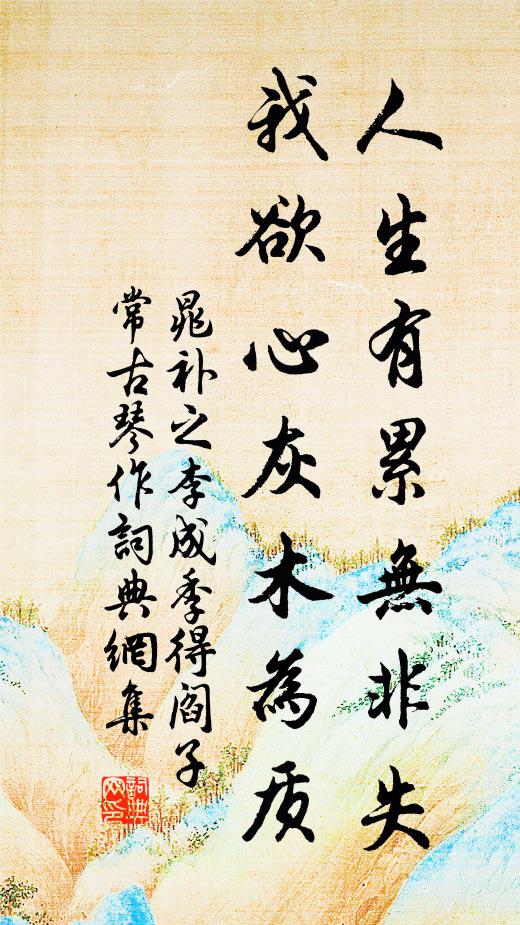 人生有累無非失
我欲心灰木為质
晁补之李成季得阎子
常古琴作詞典網集
詞典